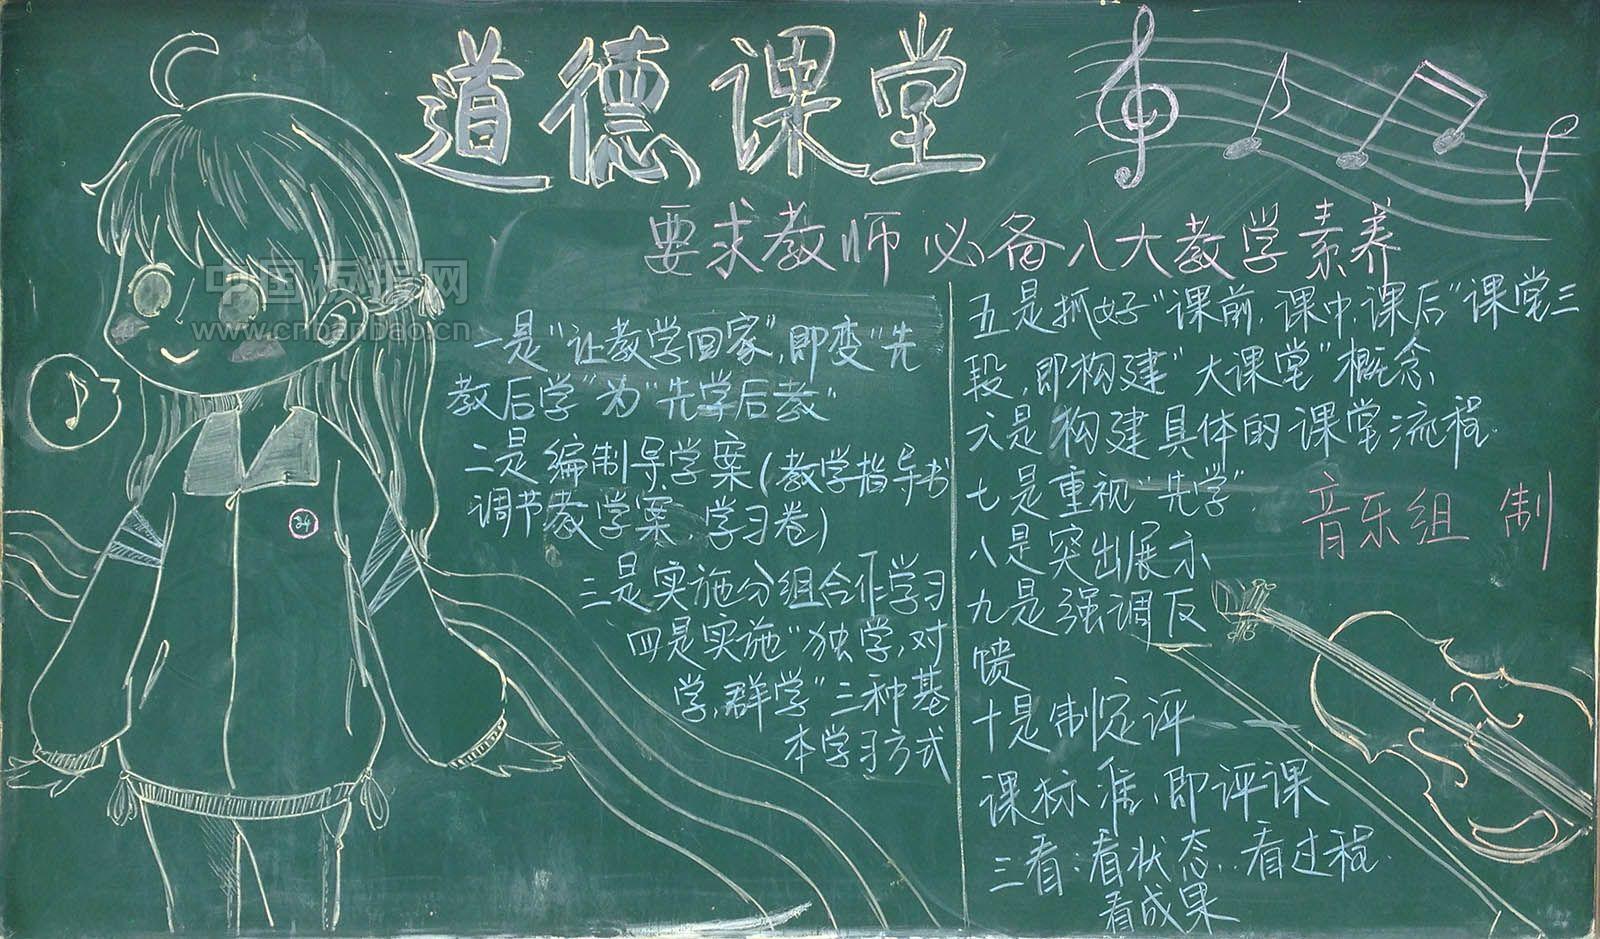 道德课堂
要求教师必备八大教学素养
一是“让教学回家”，即变“先
教后学”为“先学后教”
二是编制导学案(教学指导书
调节教学案 学习卷)
三是实施分组合作学习
四是实施“独学，对
学，群学”三种基
本学习方式
五是抓好“课前，课中，课后”课堂三
段，即构建“大课堂”概念
六是构建具体的课堂流程.
七是重视“先学”
八是突出展示
九是强调反
馈
十是制定评
课标准，即评课
三看：看状态，看过程.
看成果
音乐组 制
34
中国板报网
www.cnbanbao.cn